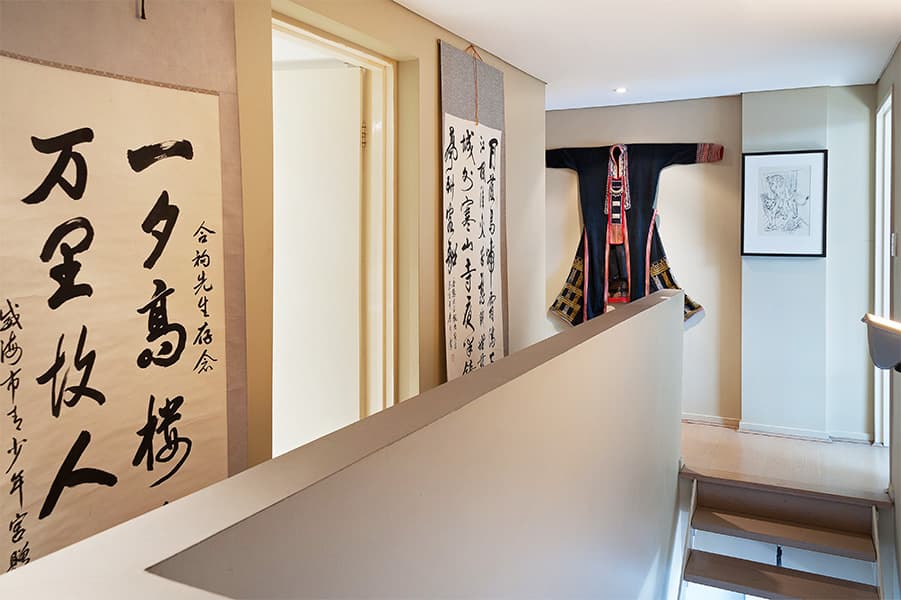 合先生存念
一夕高楼
万里故人
威海市青少年宫赠
月落烏啼霜滿天
江楓漁火對愁眠姑蘇
城外寒山寺夜半鐘
聲到客船